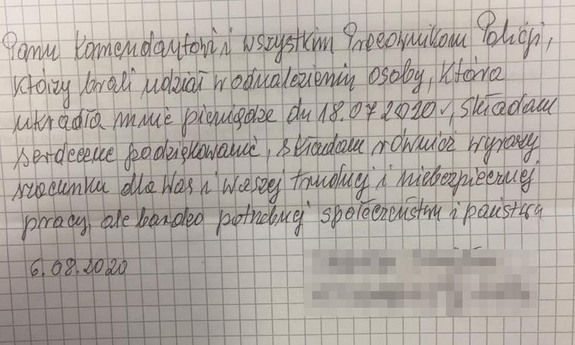 Panu Komendantowi i wszystkim Pracownikom Policji,
którzy brali udział w odnalezieniu osoby, która
ukradła mnie pieniądze dn 18.07.2020 r, składam
serdeczne podziękowanie, składam również wyrazy
szacunku dla Was i waszej trudnej i niebezpiecznej
pracy, ale bardzo potrzebnej społeczeństwu i państwu
6.08.2020